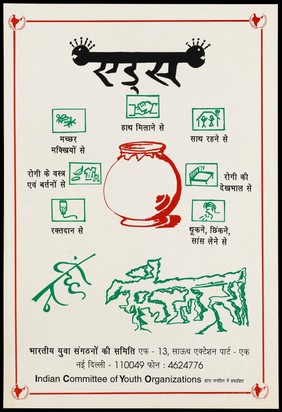 एड्स
हाथ मिलाने से
मच्छर
मक्खियों से
साथ रहने से
रोगी के वस्त्र
एवं बर्तनों से
रोगी की
देखभाल से
रक्तदान से
थूकने, छिंकने,
सांस लेने से
नहीं
भारतीय युवा संगठनों की समिति एफ - 13, साऊथ एक्टेशन पार्ट - एक
नई दिल्ली - 110049 फोन : 4624776
Indian Committee of Youth Organizations द्वारा जनहित में प्रकाशित